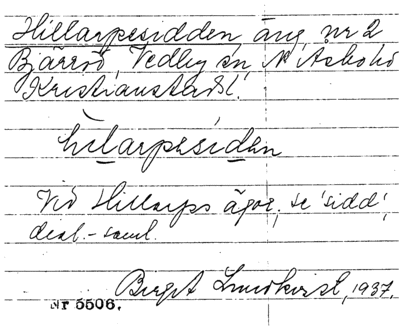 Hillarpesidden äng, nr 2
Bjärröd, Vedby sn, N. Åsbo hd
Kristianstads l.
hilarpesiden
Vid Hillarps ägor, se 'sidd',
dial.-saml.
Birgit Lundkvist, 1937.
Nr 5506.